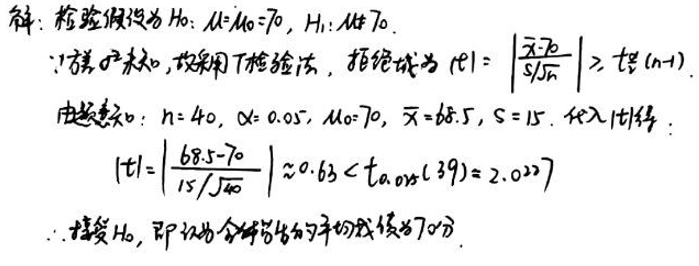 解: 检验假设为 H₀: μ=μ₀=70, H₁: μ≠70.
∵方差σ²未知,故采用T检验法, 拒绝域为 |t| = |(x̄-70)/(S/√n)| ≥ t_{α/2}(n-1).
由题意知: n=40, α=0.05, μ₀=70, x̄=68.5, S=15. 代入|t|得:
|t| = |(68.5-70)/(15/√40)| ≈ 0.63 < t_{0.025}(39) = 2.0227
∴接受H₀, 即认为全体考生的平均成绩为70分.